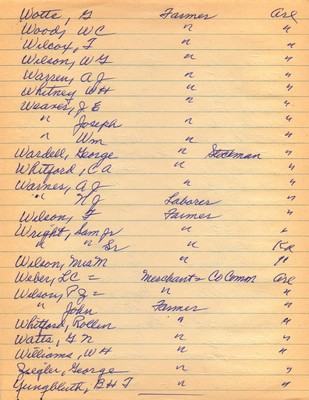 Watts, G Farmer Arl
Wood, W C " "
Wilcox, F " "
Wilson, W G " "
Warren, A J " "
Whitney, W H " "
Weaver, J E " "
" Joseph " "
" Wm " "
Wardell, George " Stockman "
Whitford, C A " "
Warner, A J " "
" N J Laborer "
Wilson, F Farmer "
Wright, Sam Jr " "
" " Sr "
Wilson, Mis M " "
Weber, L C = Merchant = Co Comm Arl
Wilson, P J = " "
" John Farmer "
Whitford, Rollin " "
Watts, G N " "
Williams, W H " "
Ziegler, George " "
Yungbluth, B H T " "